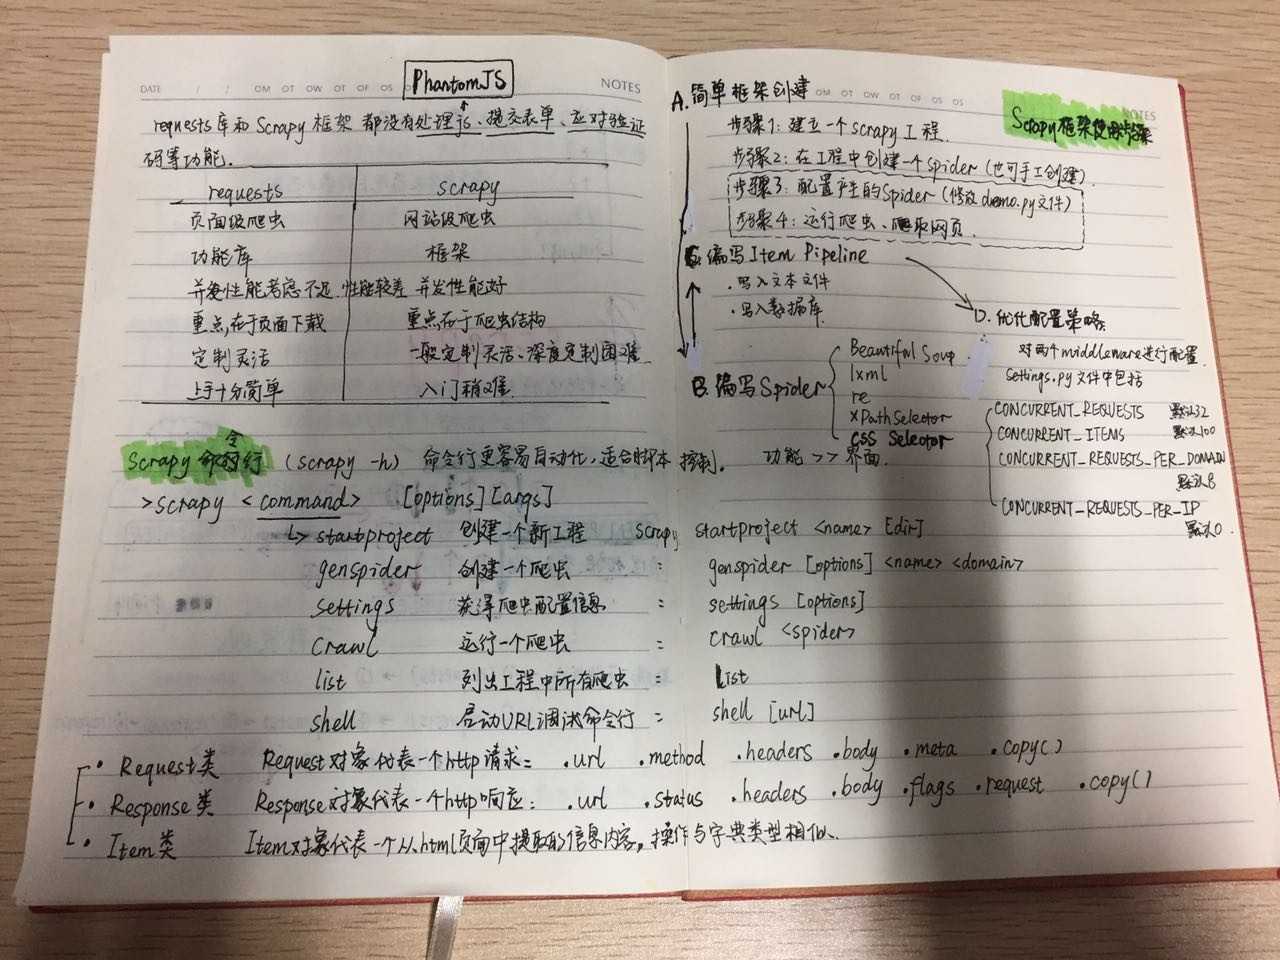 PhantomJS
DATE / / OM OT OW OT OF OS NOTES
requests库和Scrapy框架都没有处理js、提交表单、应对验证
码等功能.
requests scrapy
页面级爬虫 网站级爬虫
功能库 框架
并发性能考虑不足.性能较差 并发性能好
重点在于页面下载 重点在于爬虫结构
定制灵活 一般定制灵活、深度定制困难
上手十分简单 入门稍难.
OM OT OW OT OF OS OS NOTES
Scrapy框架使用步骤
A.简单框架创建
步骤1：建立一个scrapy工程.
步骤2：在工程中创建一个spider(也可手工创建).
步骤3：配置产生的Spider(修改demo.py文件)
步骤4：运行爬虫、爬取网页.
C.编写Item Pipeline
·写入文本文件
·写入数据库.
B.编写Spider
Beautiful Soup
lxml
re
XPathSelector
CSS Selector
D.优化配置策略.
对两个middleware进行配置
settings.py文件中包括
CONCURRENT_REQUESTS 默认32
CONCURRENT_ITEMS 默认100
CONCURRENT_REQUESTS_PER_DOMAIN
默认8
CONCURRENT_REQUESTS_PER_IP
默认0.
Scrapy命令行 (scrapy -h) 命令行更容易自动化,适合脚本控制. 功能>>界面.
>scrapy <command> [options][args]
↳ startproject 创建一个新工程 scrapy startproject <name> [dir]
genspider 创建一个爬虫 : genspider [options] <name> <domain>
settings 获得爬虫配置信息 : settings [options]
crawl 运行一个爬虫 : crawl <spider>
list 列出工程中所有爬虫 : list
shell 启动URL调试命令行 : shell [url]
· Request类 Request对象代表一个http请求: .url .method .headers .body .meta .copy()
· Response类 Response对象代表一个http响应: .url .status .headers .body .flags .request .copy()
· Item类 Item对象代表一个从html页面中提取的信息内容,操作与字典类型相似.